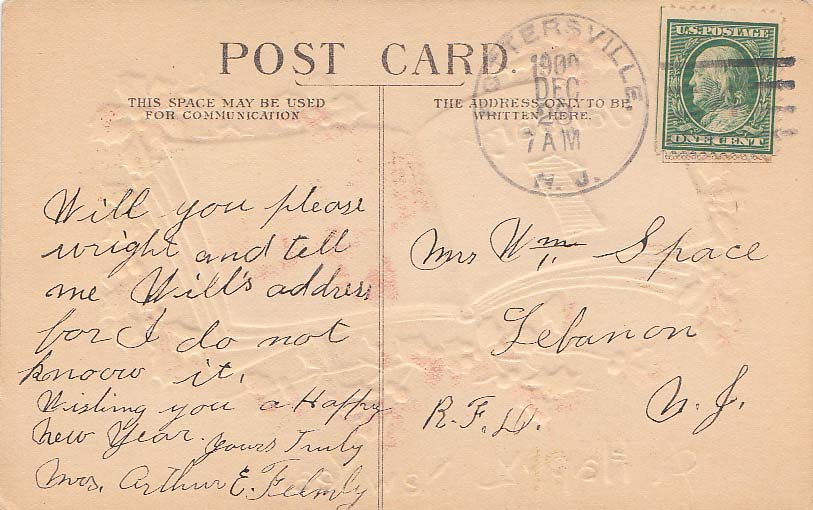 POST CARD.
THIS SPACE MAY BE USED
FOR COMMUNICATION
THE ADDRESS ONLY TO BE
WRITTEN HERE.
1909
DEC
7 AM
N. J.
U.S. POSTAGE
ONE CENT
Will you please
wright and tell
me Will's address
for I do not
knoow it.
Wishing you a Happy
New Year. yours Truly
Mrs. Arthur E.
Mrs Wm Space
Lebanon
R.F.D. N.J.